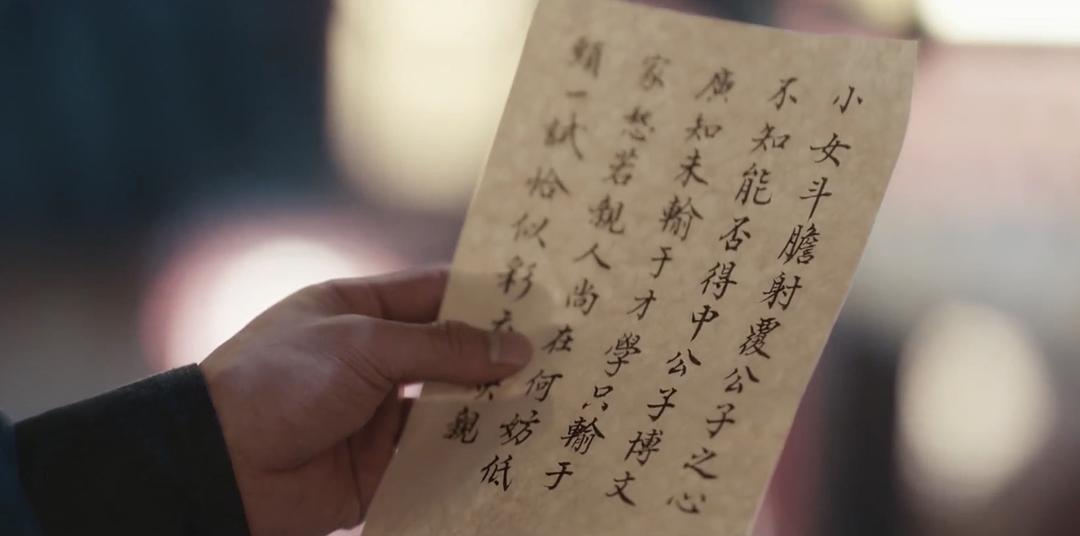 小女斗膽射覆公子之心
不知能否得中公子博文
廣知未輸于才學只輸于
家愁若親人尚在何妨低
頭一試恰似彩衣親